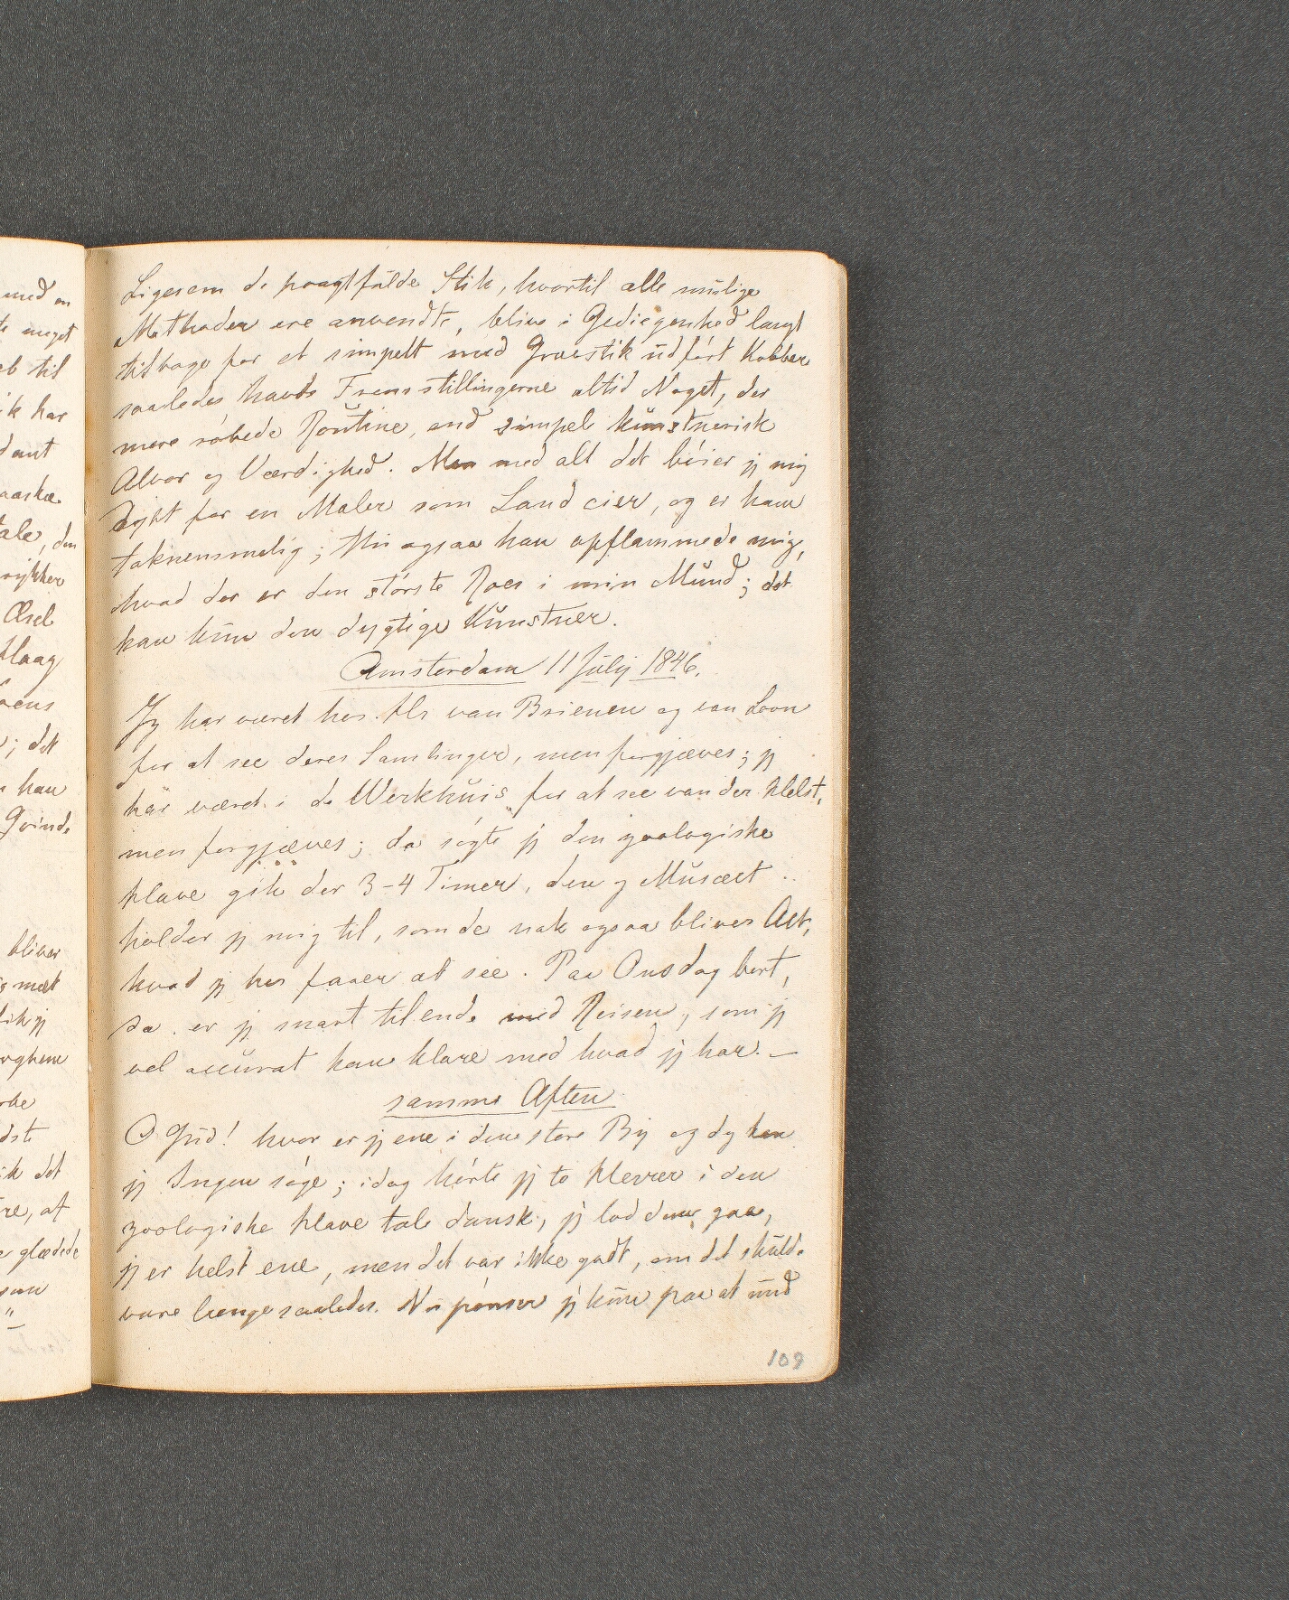 Ligesom de pragtfulde Stik, hvortil alle mulige
Methoder ere anvendte, blive i Gediegenhed langt
tilbage for et simpelt med Gravstik udført Kobber
saaledes havde Fremstillingerne altid Noget, der
mere røbede Routine, end simpel kunstnerisk
Alvor og Værdighed. Men med alt det bøier jeg mig
dybt for en Maler som Landcier, og er ham
taknemmelig; thi ogsaa han opflammede mig,
hvad der er den største Roes i min Mund; det
kan kun den dygtige Kunstner.
Amsterdam 11 July 1846.
Jeg har været hos Hr van Brienen og van Loon
for at see deres Samlinger, men forgjæves; jeg
har været i de Werkhuis for at see van der Helst,
men forgjæves; da søgte jeg den zoologiske
Have gik der 3-4 Timer, den og Musæet
holder jeg mig til, som de nok ogsaa bliver Alt,
hvad jeg her faaer at see. Paa Onsdag bort,
da er jeg snart tilende med Reisen, som jeg
vel accurat kan klare med hvad jeg har. —
samme Aften
O Gud! hvor er jeg ene i denne store By og dog kan
jeg Ingen søge; idag hørte jeg to Herrer i den
zoologiske Have tale dansk, jeg lod dem gaae,
jeg er helst ene, men det var ikke godt, om det skulde
vare længe saaledes. Nu pønser jeg kun paa at und
109